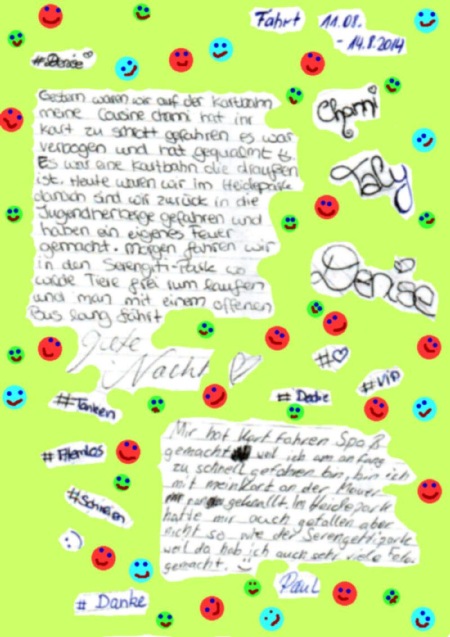 Fahrt 11.08.
- 14.8.2014
#Denise
Gestern waren wir auf der Kartbahn
meine Cousine chami hat ihr
Kart zu schrott gefahren es war
verbogen und hat gequalmt ts.
Es war eine Kartbahn die draußen
ist. Heute waren wir im Heidepark
danach sind wir zurück in die
Jugendherberge gefahren und
haben ein eigenes Feuer
gemacht. Morgen fahren wir
in den Serengeti-Park wo
wilde Tiere frei rum laufen
und man mit einem offenen
Bus lang fährt
gute
Nacht
Chami
Taly
Denise
#
#VIP
# Decke
#Tanken
#Atemlos
#Schlafen
:)
# Danke
Mir hat Kart fahren Spaß
gemacht weil ich am anfang
zu schnell gefahren bin, bin ich
mit mein Kart an der Mauer
geknallt. Im Heidepark
hatte mir auch gefallen aber
nicht so wie der Serengettipark
weil da hab ich auch sehr viele Fotos
gemacht. :)
Paul